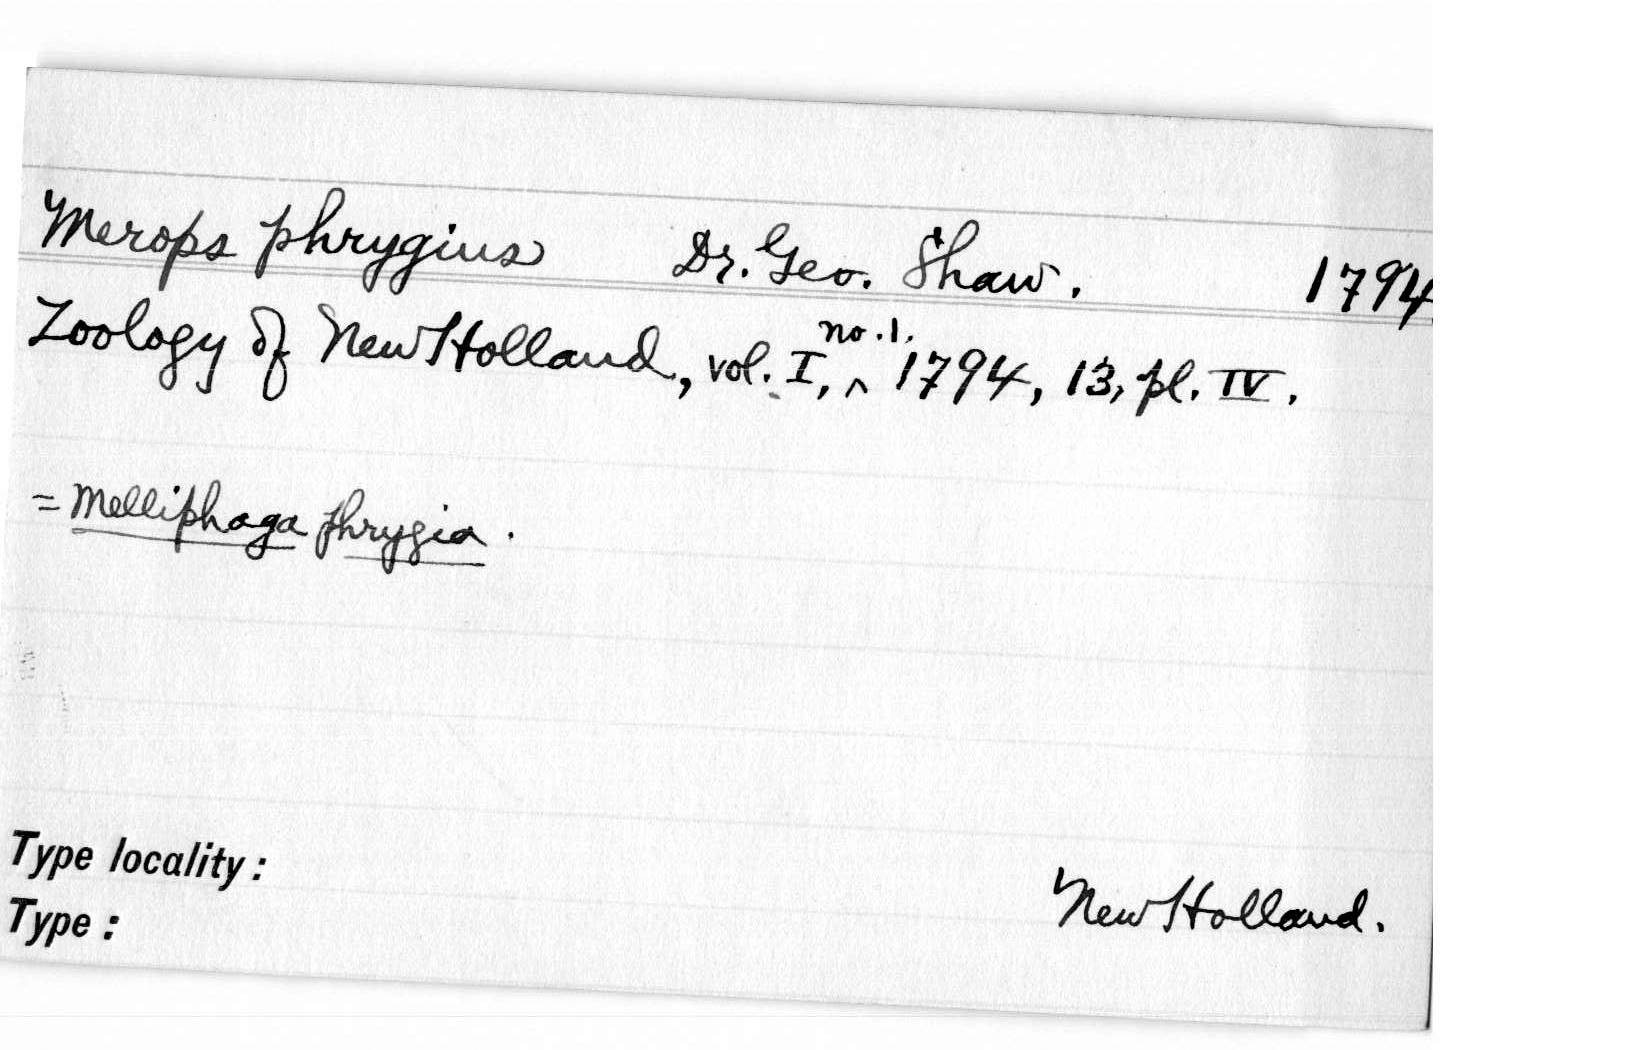 Merops phrygius Dr. Geo. Shaw. 1794
Zoology of New Holland, vol. I, no. 1. 1794, 13, pl. IV.
= Melliphaga phrygia.
Type locality:
New Holland.
Type: